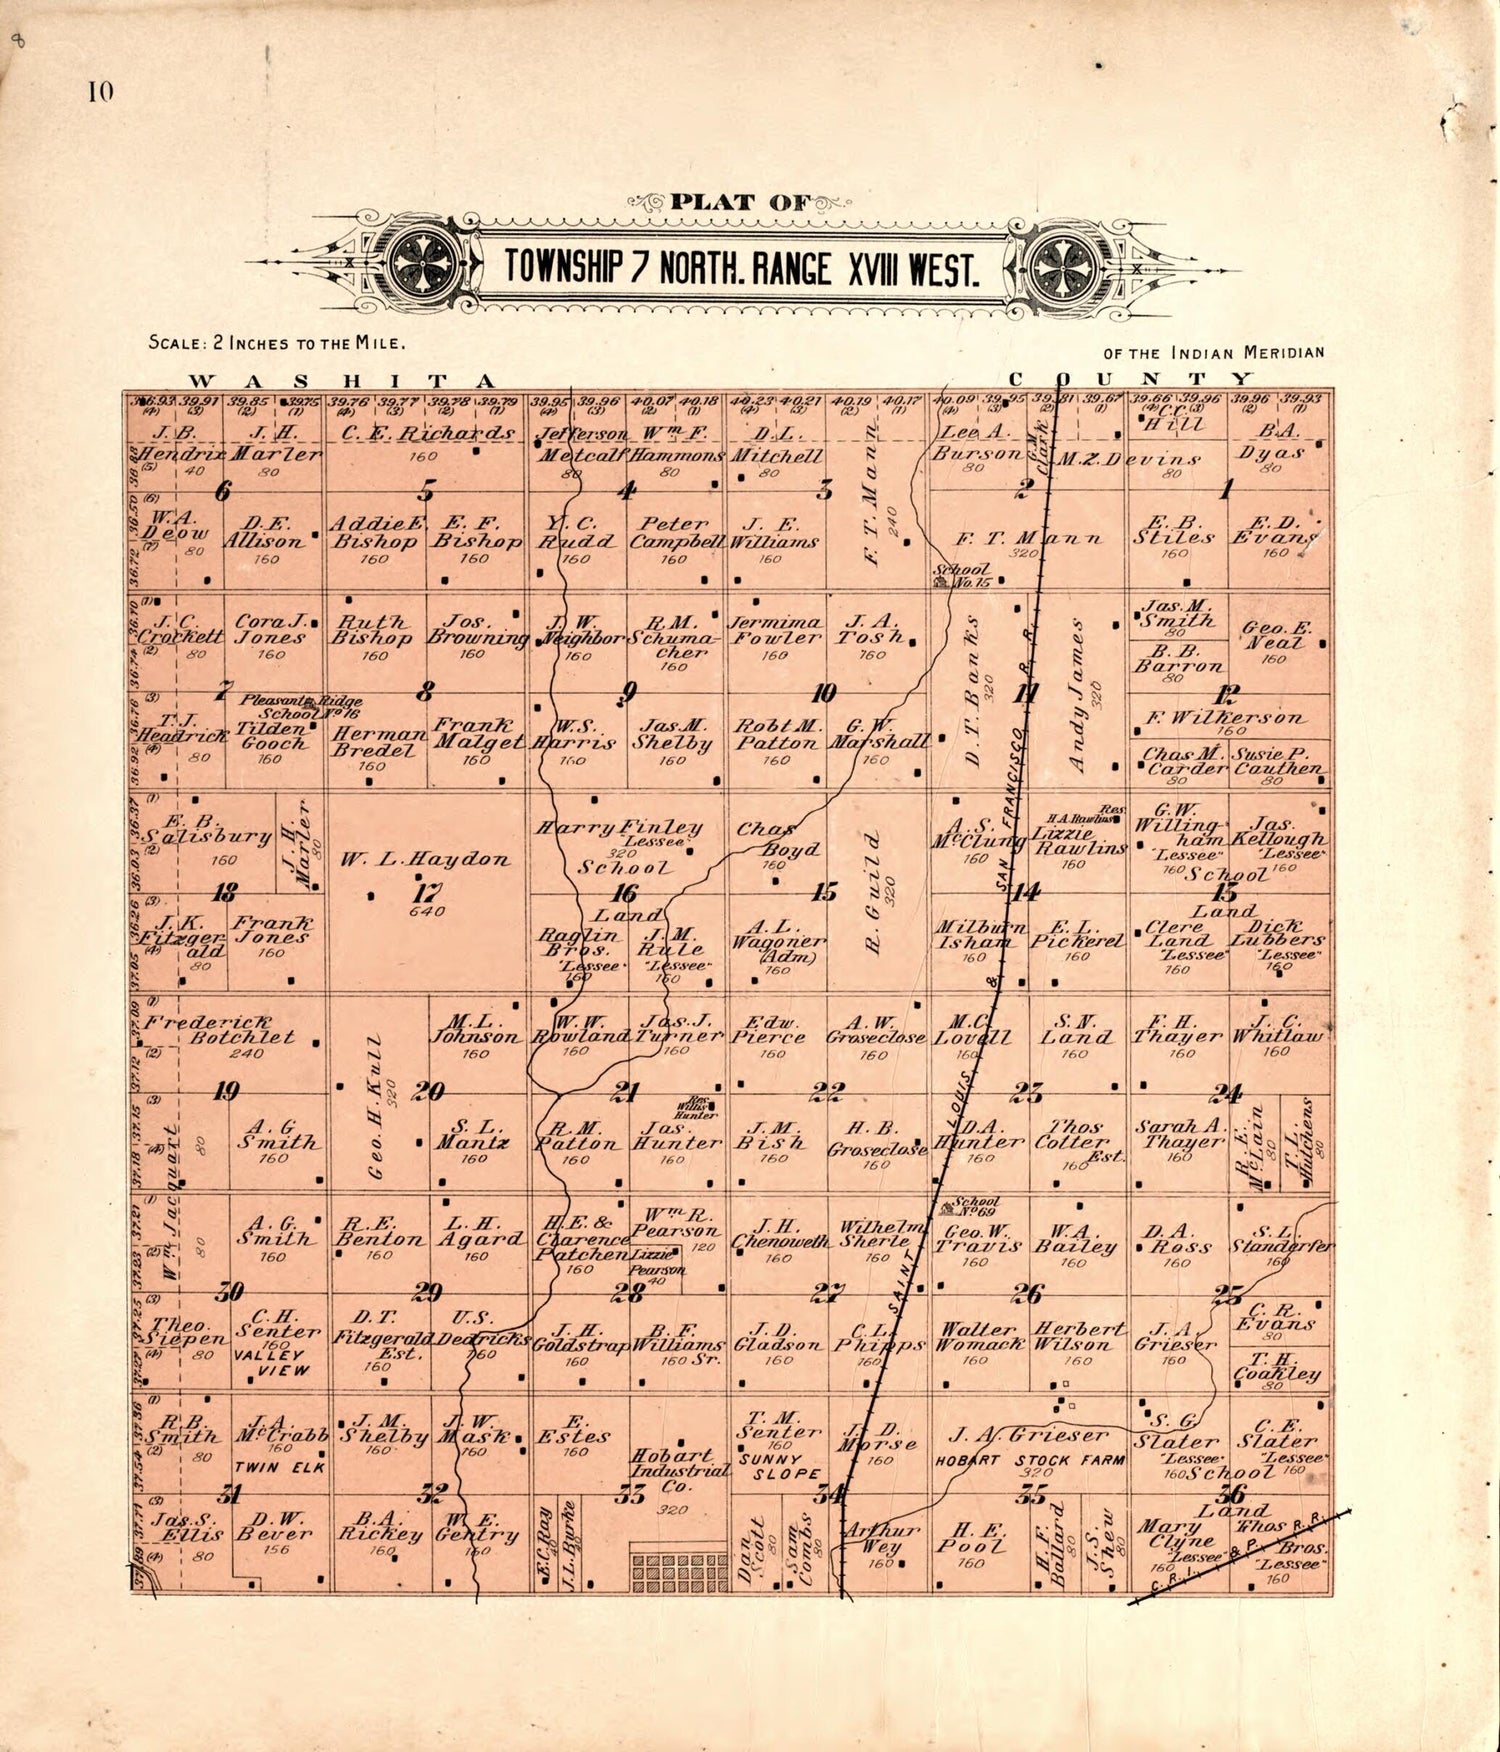 8
10
PLAT OF
TOWNSHIP 7 NORTH. RANGE XVIII WEST.
SCALE: 2 INCHES TO THE MILE.
OF THE INDIAN MERIDIAN
WASHITA COUNTY
39.91 39.85 39.76 39.77 39.78 39.79 39.95 39.96 40.07 40.18 40.23 40.21 40.19 40.17 40.09 39.67 39.66 39.96 39.96 39.93
(4) (3) (2) (1) (4) (3) (2) (1) (4) (3) (2) (1) (4) (3) (2) (1) (4) (3) (2) (1)
J. B. Hendrix 40
J. H. Marler 80
6
W. A. Deow 80
D. E. Allison 160
C. E. Richards 160
5
Addie E. Bishop 160
E. F. Bishop 160
Jefferson Metcalf 80
Wm F. Hammons 80
4
Y. C. Rudd 160
Peter Campbell 160
D. L. Mitchell 80
3
J. E. Williams 160
F. T. Mann 240
Lee A. Burson 80
Clark
M. Z. Devins 80
2
F. T. Mann 320
School No. 15
C.C. Hill
B. A. Dyas 80
1
E. B. Stiles 160
E. D. Evans 160
J. C. Crockett 80
Cora J. Jones 160
7
Pleasant Ridge School No 76
T. J. Headrick 80
Tilden Gooch 160
Ruth Bishop 160
Jos. Browning 160
8
Herman Bredel 160
Frank Malget 160
J. W. Neighbor 160
R. M. Schumacher 160
9
W. S. Harris 160
Jas. M. Shelby 160
Jermima Fowler 160
J. A. Tosh 160
10
Robt M. Patton 160
G. W. Marshall 160
D. T. Banks 320
11
Andy James 320
Jas. M. Smith 80
B. B. Barron 80
Geo. E. Neal 160
12
F. Wilkerson 160
Chas M. Carder 80
Susie P. Cauthen 80
E. B. Salisbury 160
J. H. Marler 80
18
J. K. Fitzgerald 80
Frank Jones 160
W. L. Haydon
17
640
Harry Finley "Lessee" 320
School
16
Land
Raglin Bros. "Lessee" 160
J. M. Rule "Lessee" 160
Chas Boyd 160
15
A. L. Wagoner (Adm) 160
R. Guild 320
A. S. McClung 160
Res. H.A. Rawlins
Lizzie Rawlins 160
14
Milburn Isham 160
E. L. Pickerel 160
G. W. Willingham "Lessee" 160
Jas. Kellough "Lessee" 160
School
13
Land
Clere Land "Lessee" 160
Dick Lubbers "Lessee" 160
Frederick Botchlet 240
19
A. G. Smith 160
80
Wm Jacquart
Geo. H. Kull 320
M. L. Johnson 160
20
S. L. Mantz 160
W. W. Rowland 160
Jas. J. Turner 160
21
Res. Willis Hunter
R. M. Patton 160
Jas. Hunter 160
Edw. Pierce 160
A. W. Groseclose 160
22
J. M. Bish 160
H. B. Groseclose 160
M. C. Lovell 160
S. N. Land 160
23
D. A. Hunter 160
Thos Cotter Est. 160
F. H. Thayer 160
J. C. Whitlaw 160
24
Sarah A. Thayer 160
R. E. McLain 80
T. L. Hutchens 80
80
A. G. Smith 160
30
Theo. Siepen 80
C. H. Senter 160
VALLEY VIEW
R. E. Benton 160
L. H. Agard 160
29
D. T. Fitzgerald Est. 160
U. S. Dedricks 160
H. E. & Clarence Patchen 160
Wm R. Pearson 120
Lizzie Pearson 40
28
J. H. Goldstrap 160
B. F. Williams Sr. 160
J. H. Chenoweth 160
Wilhelm Sherle 160
27
J. D. Gladson 160
C. L. Phipps 160
School No 69
Geo. W. Travis 160
W. A. Bailey 160
26
Walter Womack 160
Herbert Wilson 160
D. A. Ross 160
S. L. Standerfer 160
25
J. A. Grieser 160
C. R. Evans 80
T. H. Coakley 80
R. B. Smith 80
J. A. McCrabb 160
TWIN ELK
31
Jas. S. Ellis 80
D. W. Bever 156
J. M. Shelby 160
J. W. Mask 160
32
B. A. Rickey 160
W. E. Gentry 160
E. Estes 160
Hobart Industrial Co. 320
33
E. C. Ray
J. L. Burke
T. M. Senter 160
SUNNY SLOPE
J. D. Morse 160
34
Dan Scott 80
Sam Combs 80
Arthur Wey 160
J. A. Grieser
HOBART STOCK FARM
320
35
H. E. Pool 160
H. F. Ballard 80
J. S. Shew 80
S. G. Slater "Lessee" 160
C. E. Slater "Lessee" 160
School
36
Land
Mary Clyne "Lessee" 160
Thos Bros. "Lessee" 160
SAINT LOUIS & SAN FRANCISCO R. R.
C. R. I. & P. R. R.